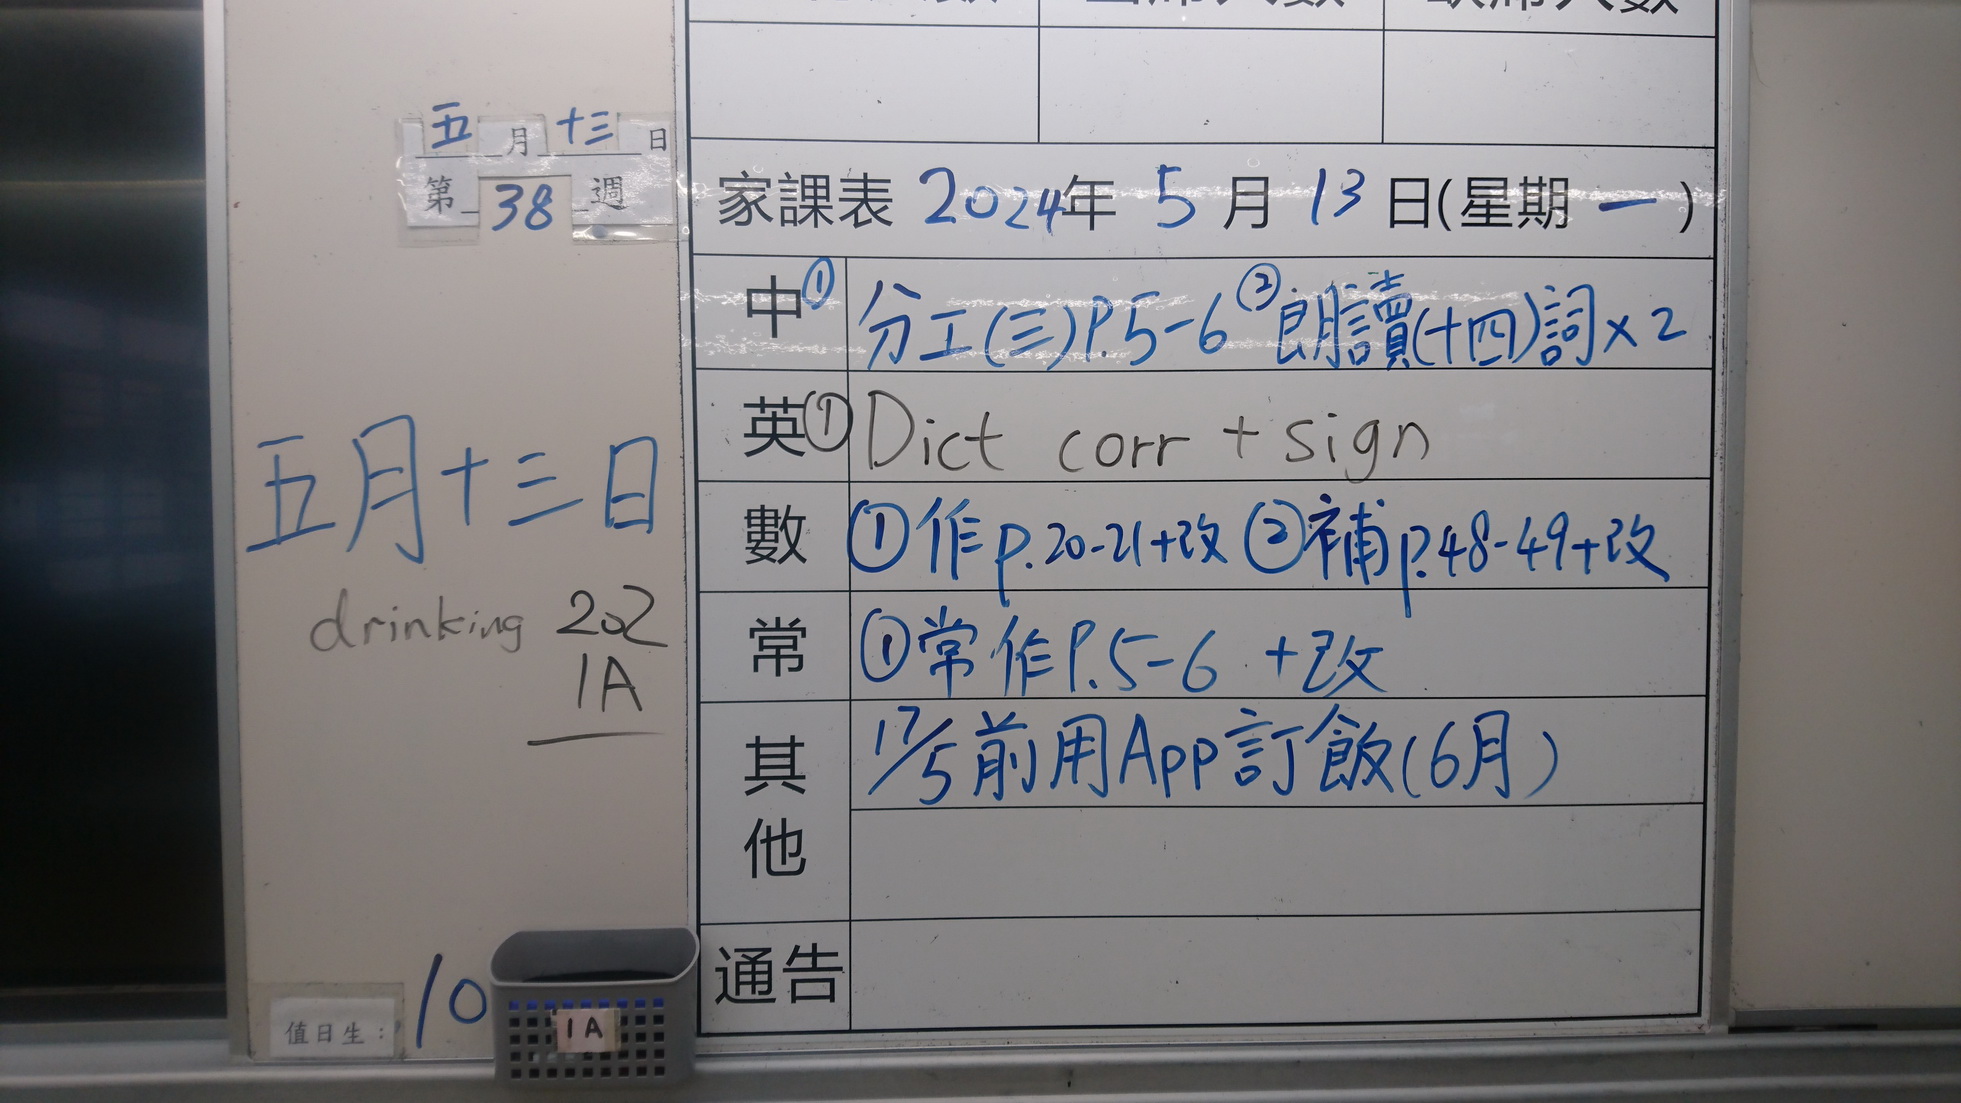 五月十三日
第38週
五月十三日
drinking 202
1A
值日生：10
1A
家課表 2024年 5月 13日(星期一)
中 ① 分工(三)P.5-6 ②朗讀(十四)詞x2
英 ① Dict corr + sign
數 ①作p.20-21+改 ②補p.48-49+改
常 ①常作P.5-6 +改
其他 17/5前用App訂飯(6月)
通告